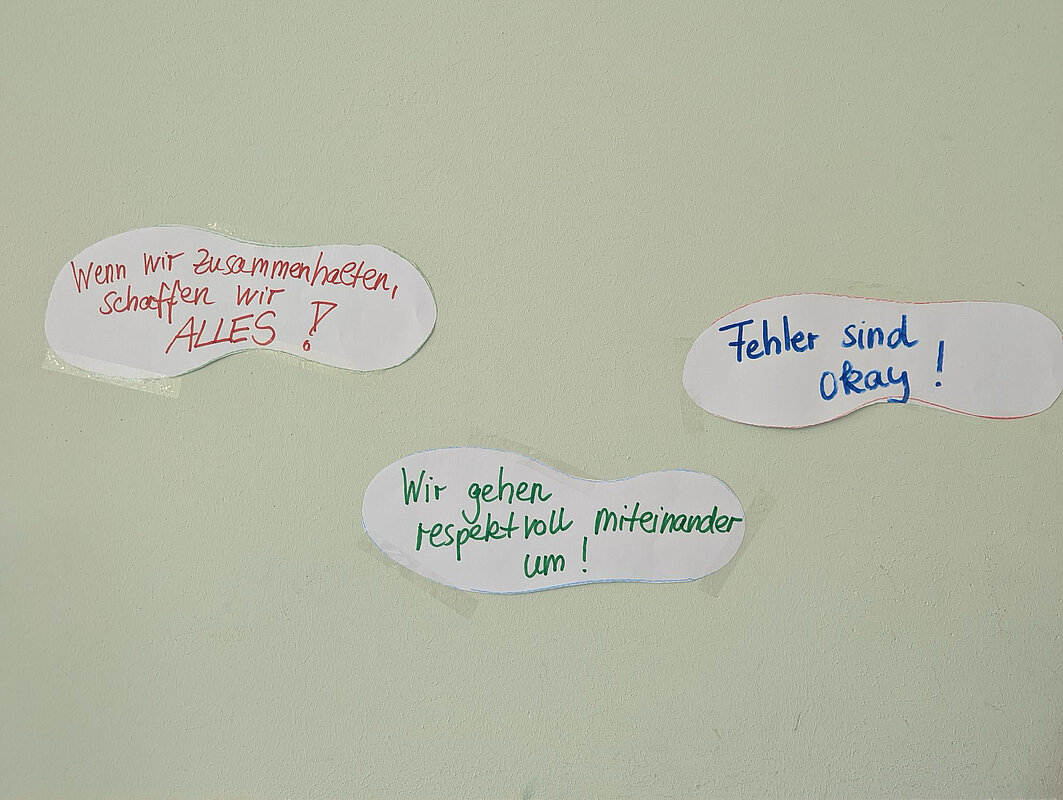 Wenn wir zusammenhalten,
schaffen wir
ALLES !
Fehler sind
okay !
Wir gehen
respektvoll miteinander
um !